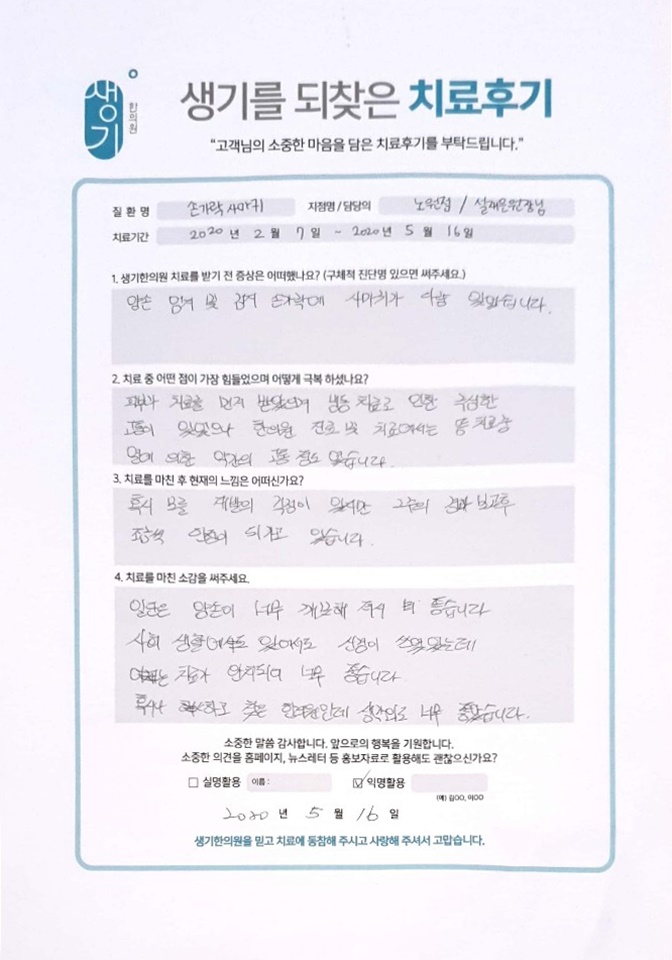 생기
한의원
생기를 되찾은 치료후기
"고객님의 소중한 마음을 담은 치료후기를 부탁드립니다."
질 환 명 손가락 사마귀 지점명 / 담당의 노원점 / 설재은원장님
치료기간 2020 년 2 월 7 일 ~ 2020 년 5 월 16 일
1. 생기한의원 치료를 받기 전 증상은 어떠했나요? (구체적 진단명 있으면 써주세요.)
양손 엄지 및 검지 손가락에 사마귀가 다수 있었습니다.
2. 치료 중 어떤 점이 가장 힘들었으며 어떻게 극복 하셨나요?
피부과 치료를 먼저 받았으며 냉동 치료로 인한 극심한
고통이 있었으나 한의원 진료 및 치료에서는 뜸 치료중
열에 의한 약간의 고통 정도 있습니다.
3. 치료를 마친 후 현재의 느낌은 어떠신가요?
혹시 모를 재발의 걱정이 있지만 그후의 경과 보고후
조금씩 안심이 되고 있습니다.
4. 치료를 마친 소감을 써주세요.
일단은 양손이 너무 깨끗해 져서 좋습니다
사회 생활에서도 있어서도 신경이 쓰였었는데
치료가 완치되어 너무 좋습니다.
혹시나 하고 찾은 한의원인데 생각외로 너무 좋았습니다.
소중한 말씀 감사합니다. 앞으로의 행복을 기원합니다.
소중한 의견을 홈페이지, 뉴스레터 등 홍보자료로 활용해도 괜찮으신가요?
실명활용 이름 : 익명활용
(예) 김OO, 이OO
2020 년 5 월 16 일
생기한의원을 믿고 치료에 동참해 주시고 사랑해 주셔서 고맙습니다.